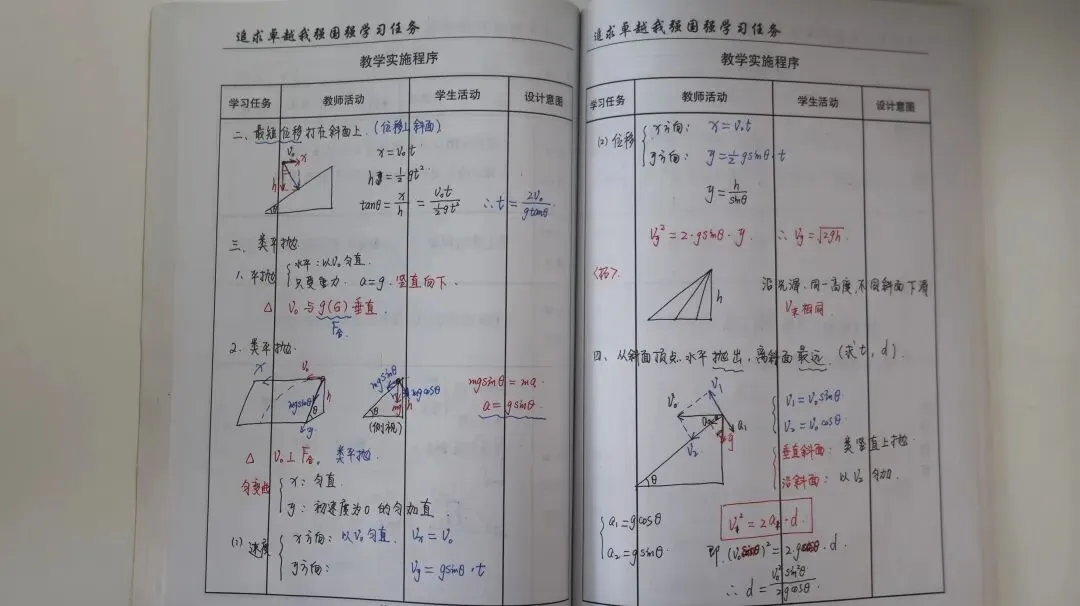 追求卓越我强国强学习任务
教学实施程序
学习任务 教师活动 学生活动 设计意图
二、最短位移打在斜面上.(位移⊥斜面)
v₀ x
h
θ
x=v₀t
h=½gt²
tanθ=x/h=v₀t/½gt² ∴t=2v₀/gtanθ.
三、类平抛.
1、平抛 { 水平:以v₀匀直.
只受重力. a=g. 竖直向下.
△ v₀与g(G)垂直.
F合
2、类平抛.
x v₀ mgsinθ θ h y
mgsinθ mgcosθ mg h θ
(侧视)
mgsinθ=ma.
a=gsinθ.
△ v₀⊥F合. 类平抛.
匀变曲 { x:匀直.
y:初速度为0的匀加直.
(1) 速度 { x方向:以v₀匀直. vx=v₀
y方向: vy=gsinθ·t
追求卓越我强国强学习任务
教学实施程序
学习任务 教师活动 学生活动 设计意图
(2) 位移 { x方向: x=v₀t
y方向: y=½gsinθ·t
y=h/sinθ
vy²=2·gsinθ·y. ∴vy=√2gh.
<拓>.
h
沿光滑、同一高度,不同斜面下滑
v末相同.
四、从斜面顶点、水平抛出,离斜面最远.(求t,d).
v₀ v₁ v₂ a₂ a₁ g θ
{ v₁=v₀sinθ
v₂=v₀cosθ
{ 垂直斜面: 类竖直上抛
沿斜面: 以v₂匀加.
{ a₁=gcosθ
a₂=gsinθ
v₁²=2a₁·d.
即(v₀sinθ)²=2·gcosθ·d.
∴d=v₀²sin²θ/2gcosθ